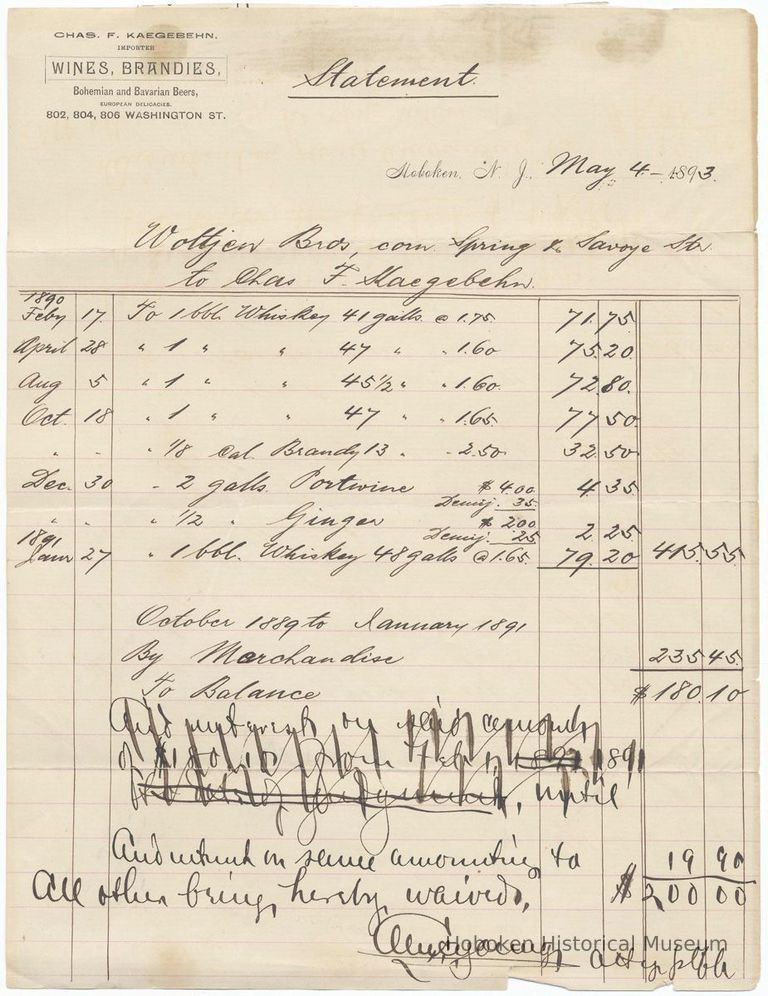 CHAS. F. KAEGEBEHN,
IMPORTER
WINES, BRANDIES,
Bohemian and Bavarian Beers,
EUROPEAN DELICACIES.
802, 804, 806 WASHINGTON ST.
Statement.
Hoboken, N. J. May 4 - 1893.
Woltjen Bros, corn. Spring & Savoye Str.
to Chas F. Kaegebehn.
1890
Feby 17. To 1 bbl. Whiskey 41 galls @ 1.75 71.75
April 28 " 1 " " 47 " " 1.60 75 20
Aug 5 " 1 " " 45 1/2 " " 1.60. 72.80.
Oct. 18 " 1 " " 47 " " 1.65 77 50
" " " 1/8 Cal. Brandy 13 " - 2.50 32.50
Dec. 30 " 2 galls. Portwine $ 4.00 4 35
Demij. 35.
" " " 1/2 " Ginger $ 2.00 2.25
Demij. 25
1891
Janr 27 " 1 bbl. Whiskey 48 galls @ 1.65. 79.20 415.55
October 1889 to January 1891
By Merchandise 235 45.
To Balance $ 180.10
And interest on said amount
of $180.10 from Feb 1, 1891
, until
And interest on same amounting to 19 90
All other being hereby waived, $ 200 00
atty pltff
Hoboken Historical Museum